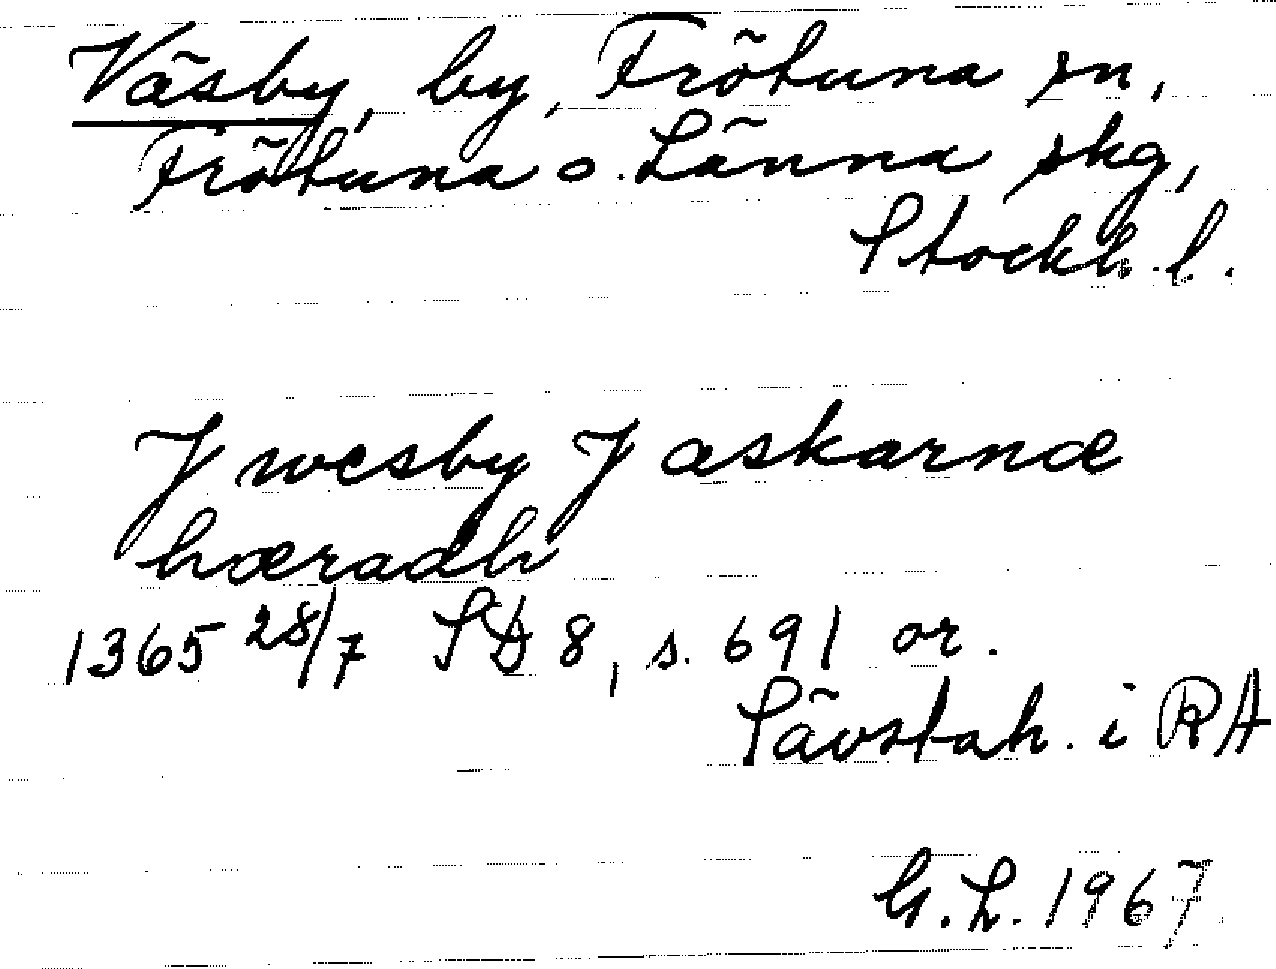 Väsby, by, Frötuna sn,
Frötuna o. Länna skg,
Stockh. l.
J wesby J askarnæ
hæradh
1365 28/7 SD 8, s. 691 or.
Sävstah. i RA
G.L. 1967